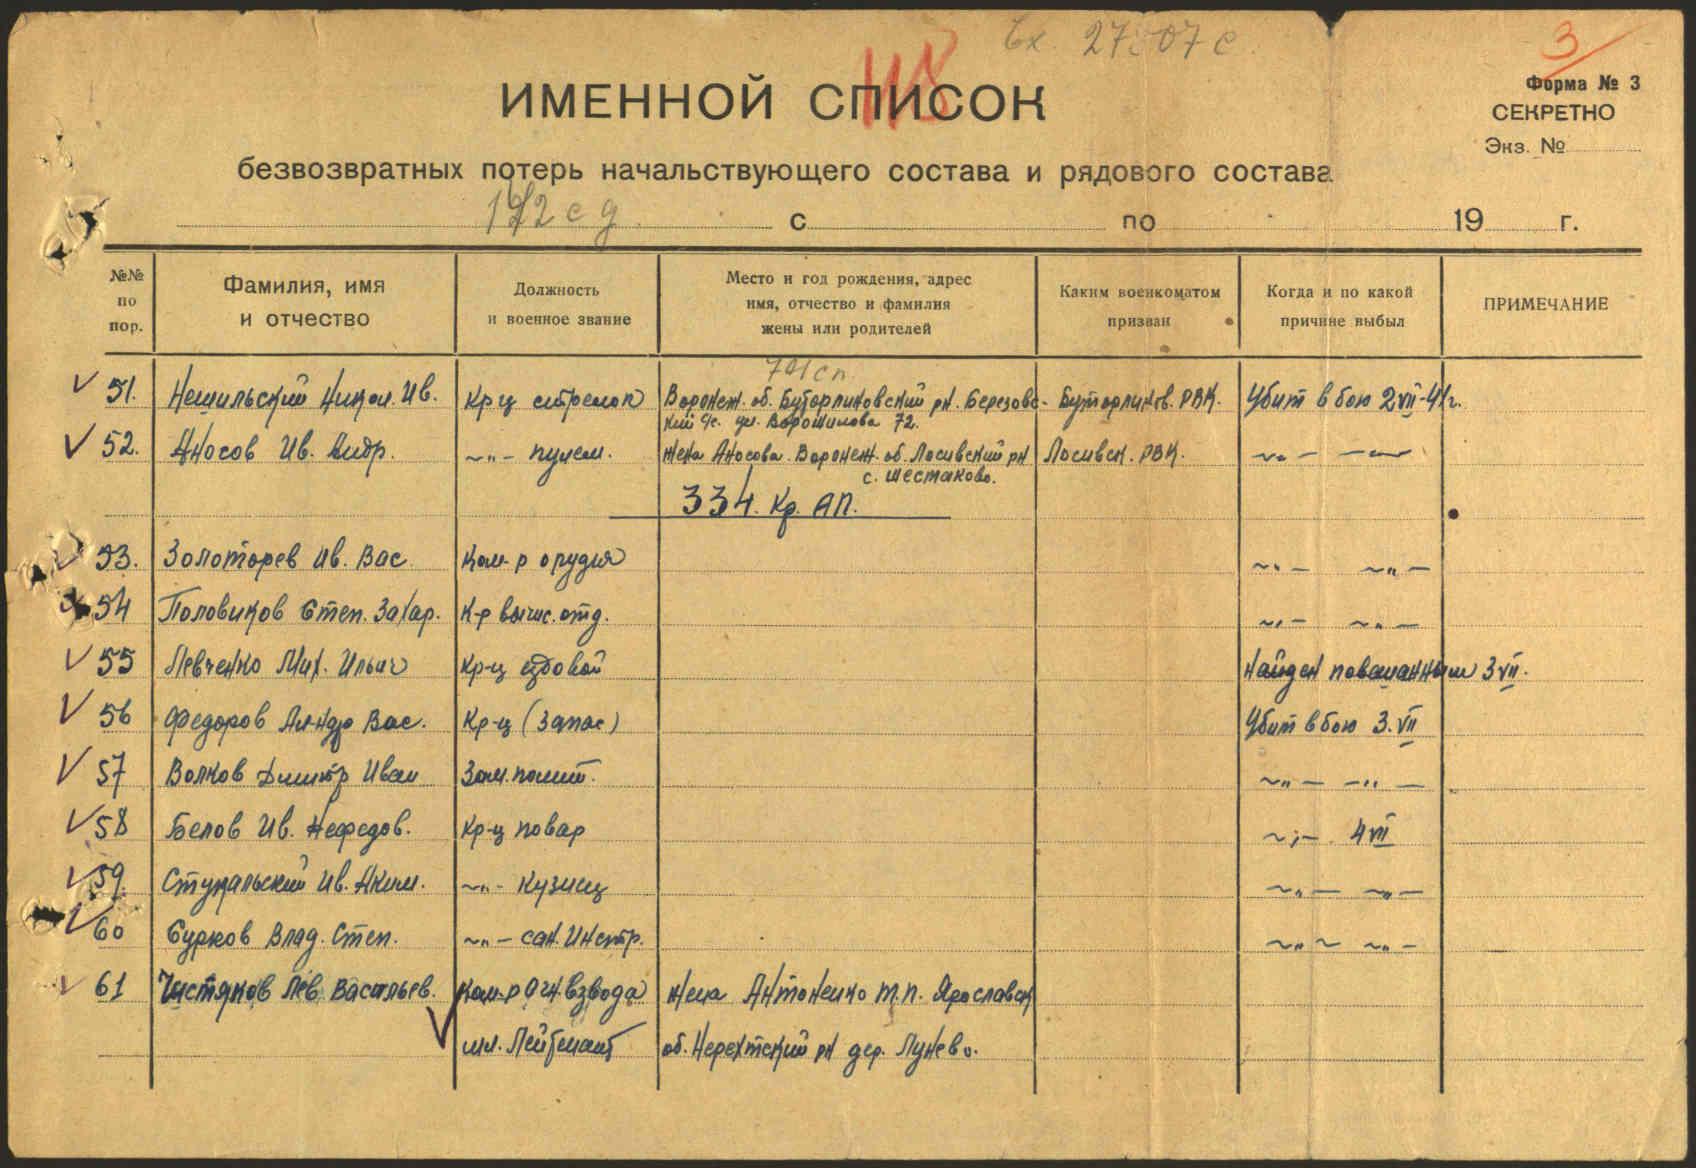 Вх. 27507 с
3
118
Форма № 3
ИМЕННОЙ СПИСОК
СЕКРЕТНО
Экз. №
безвозвратных потерь начальствующего состава и рядового состава
172 сд с по 19 г.
№№ по пор. Фамилия, имя и отчество Должность и военное звание Место и год рождения, адрес имя, отчество и фамилия жены или родителей Каким военкоматом призван Когда и по какой причине выбыл ПРИМЕЧАНИЕ
51. Нешильский Никол. Ив. Кр-ц стрелок Воронеж. об. Бутурлиновский рн. Березовс- Бутурлинов. РВК. Убит в бою 2 VII-41г.
кий с/с. ул. Ворошилова 72.
52. Аносов Ив. Андр. -"- пулем. жена Аносова. Воронеж. об. Лосивский рн Лосивск. РВК. -"- -"-
с. Шестаково.
334. Кр. АП.
53. Золоторев Ив. Вас. Ком-р орудия -"- -"-
54 Половиков Степ. Захар. К-р вычис. отд. -"- -"-
55 Левченко Мих. Ильич Кр-ц ездовой найден повешанным 3 VII.
56 Федоров Ал-ндр Вас. Кр-ц (запас) Убит в бою 3. VII
57 Волков Дмитр Иван Зам. полит. -"- -"-
58 Белов Ив. Нефедов. Кр-ц повар -"- 4 VII
59. Ив. Аким. -"- кузнец -"- -"-
60 Сурков Влад. Степ. -"- сан. Инстр. -"- -"-
61 Чистяков Лев Васильев. Ком-р огн. взвода жена Антоненко Т. П. Ярославск
мл. Лейтенант об. Нерехтский рн дер. Лунево.